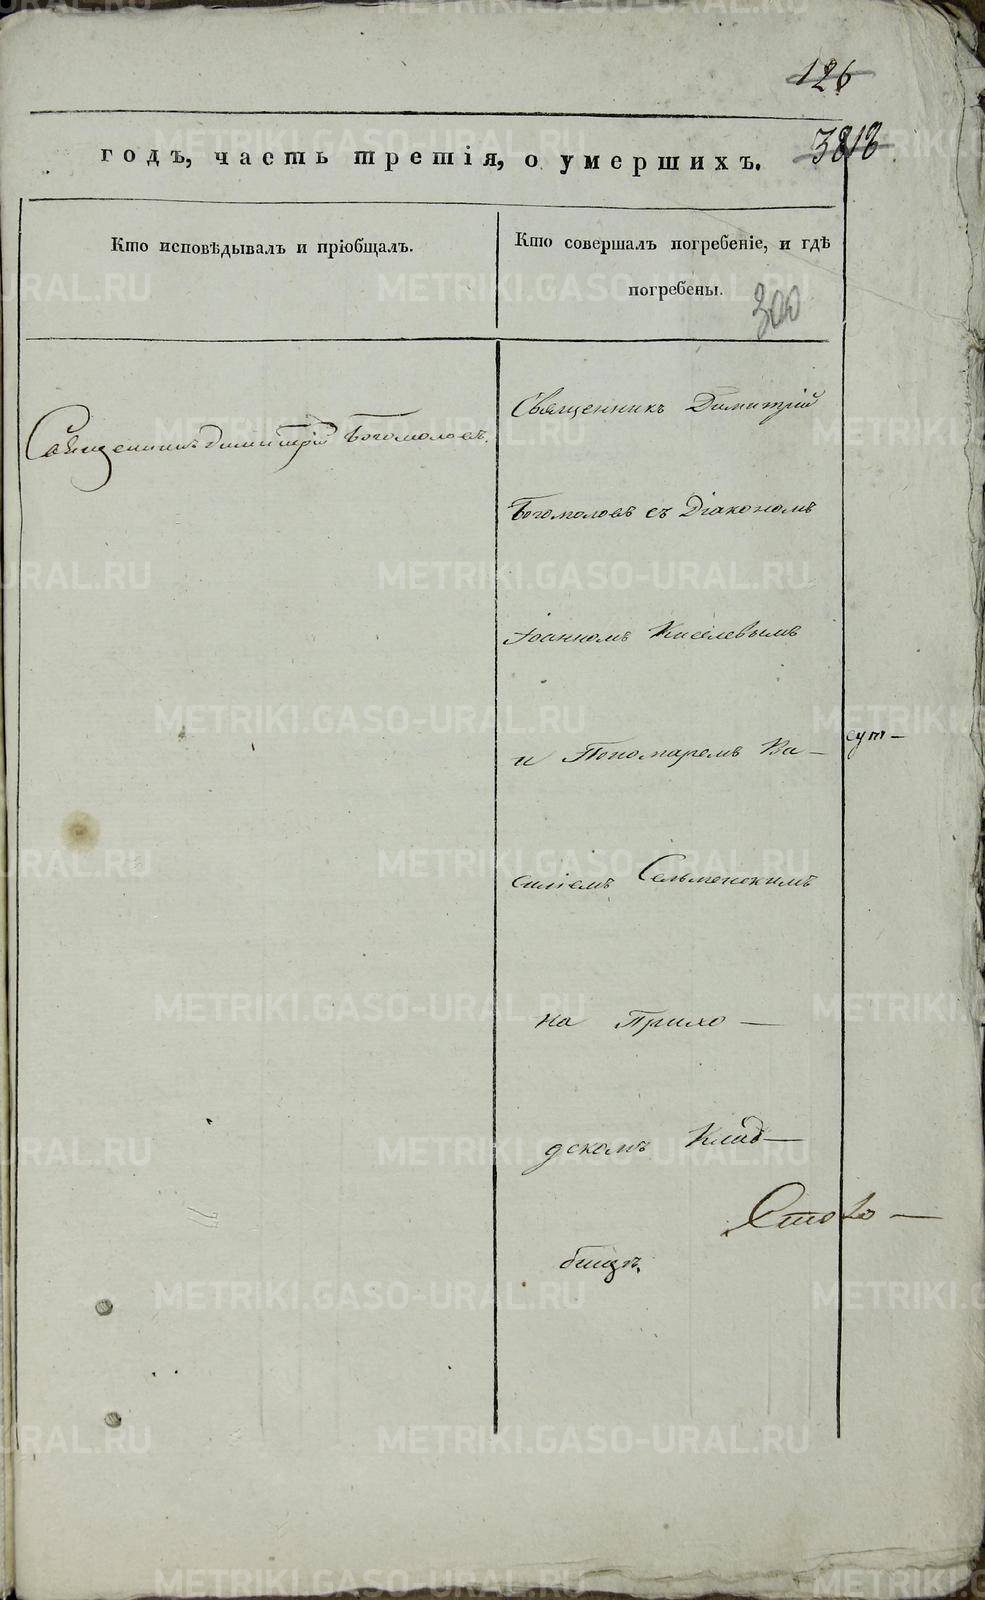 126
годъ, часть третія, о умершихъ.
Кто исповѣдывалъ и пріобщалъ.
Кто совершалъ погребеніе, и гдѣ
погребены.
300
Священникъ Димитрій Богомоловъ.
Священникъ Димитрій
Богомоловъ съ Діакономъ
Іоанномъ Киселевымъ
и Пономаремъ Ва-
силіемъ Сельменскимъ
на Прихо-
дскомъ Клад-
бищѣ.
сут-
METRIKI.GASO-URAL.RU